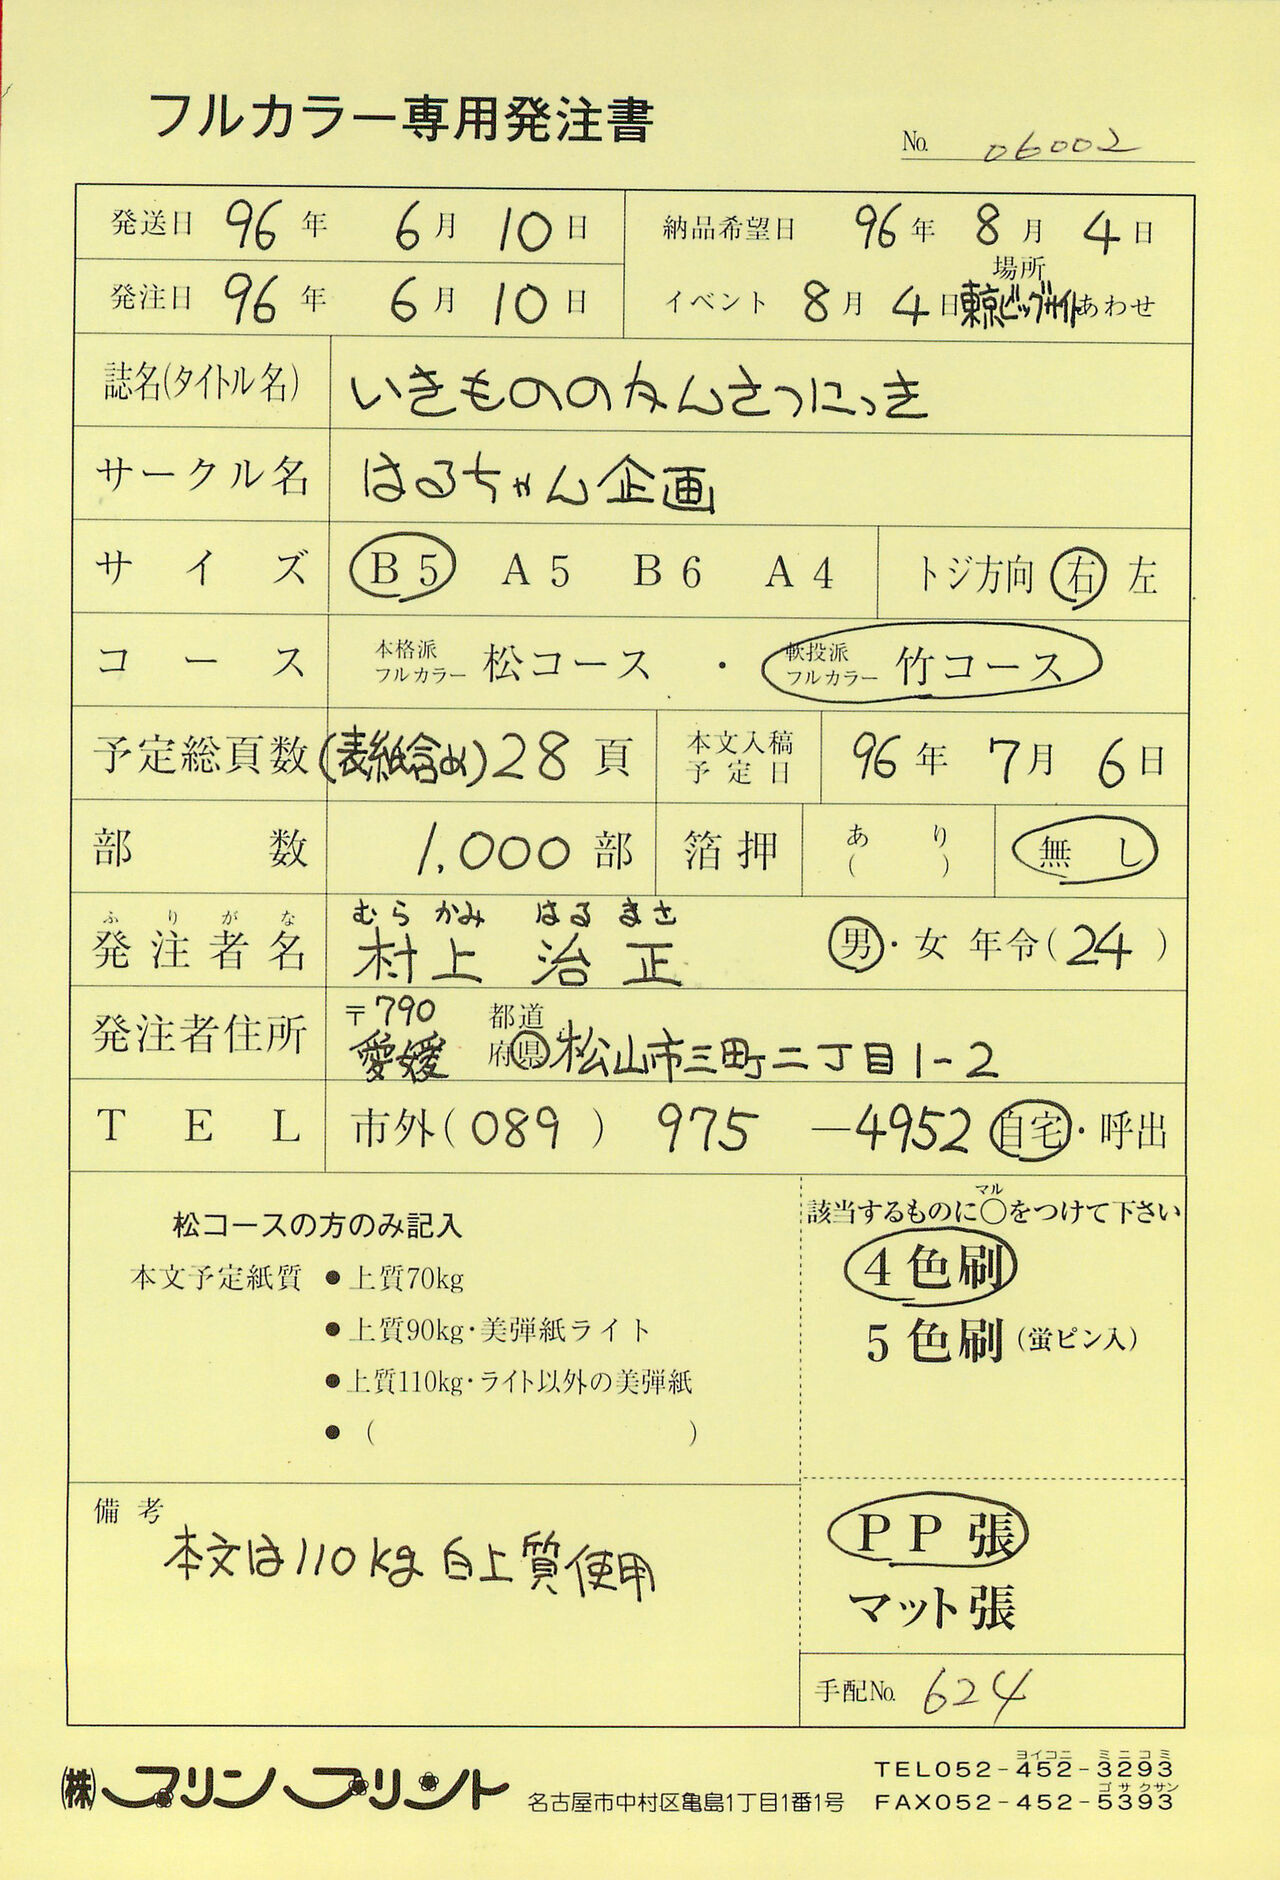 フルカラー専用発注書
No. 06002
発送日 96年 6月 10日
納品希望日 96年 8月 4日
発注日 96年 6月 10日
場所
イベント 8月 4日 東京ビッグサイト あわせ
誌名(タイトル名) いきもののかんさつにっき
サークル名 はるちゃん企画
サイズ B5 A5 B6 A4 トジ方向 右 左
コース 本格派フルカラー 松コース ・ 軟投派フルカラー 竹コース
予定総頁数 (表紙含め) 28頁 本文入稿予定日 96年 7月 6日
部数 1,000部 箔押 あり( ) 無し
ふりがな むらかみ はるまさ
発注者名 村上 治正 男・女 年令(24)
〒790
発注者住所 愛媛 都道府県 松山市三町二丁目1-2
TEL 市外(089) 975 -4952 自宅・呼出
松コースの方のみ記入
本文予定紙質 ●上質70kg
●上質90kg・美弾紙ライト
●上質110kg・ライト以外の美弾紙
●( )
マル
該当するものに○をつけて下さい
4色刷
5色刷(蛍ピン入)
備考
本文は110kg白上質使用
PP張
マット張
手配No. 624
㈱プリンプリント 名古屋市中村区亀島1丁目1番1号
ヨイコニ ミニコミ
TEL052-452-3293
ゴサクサン
FAX052-452-5393